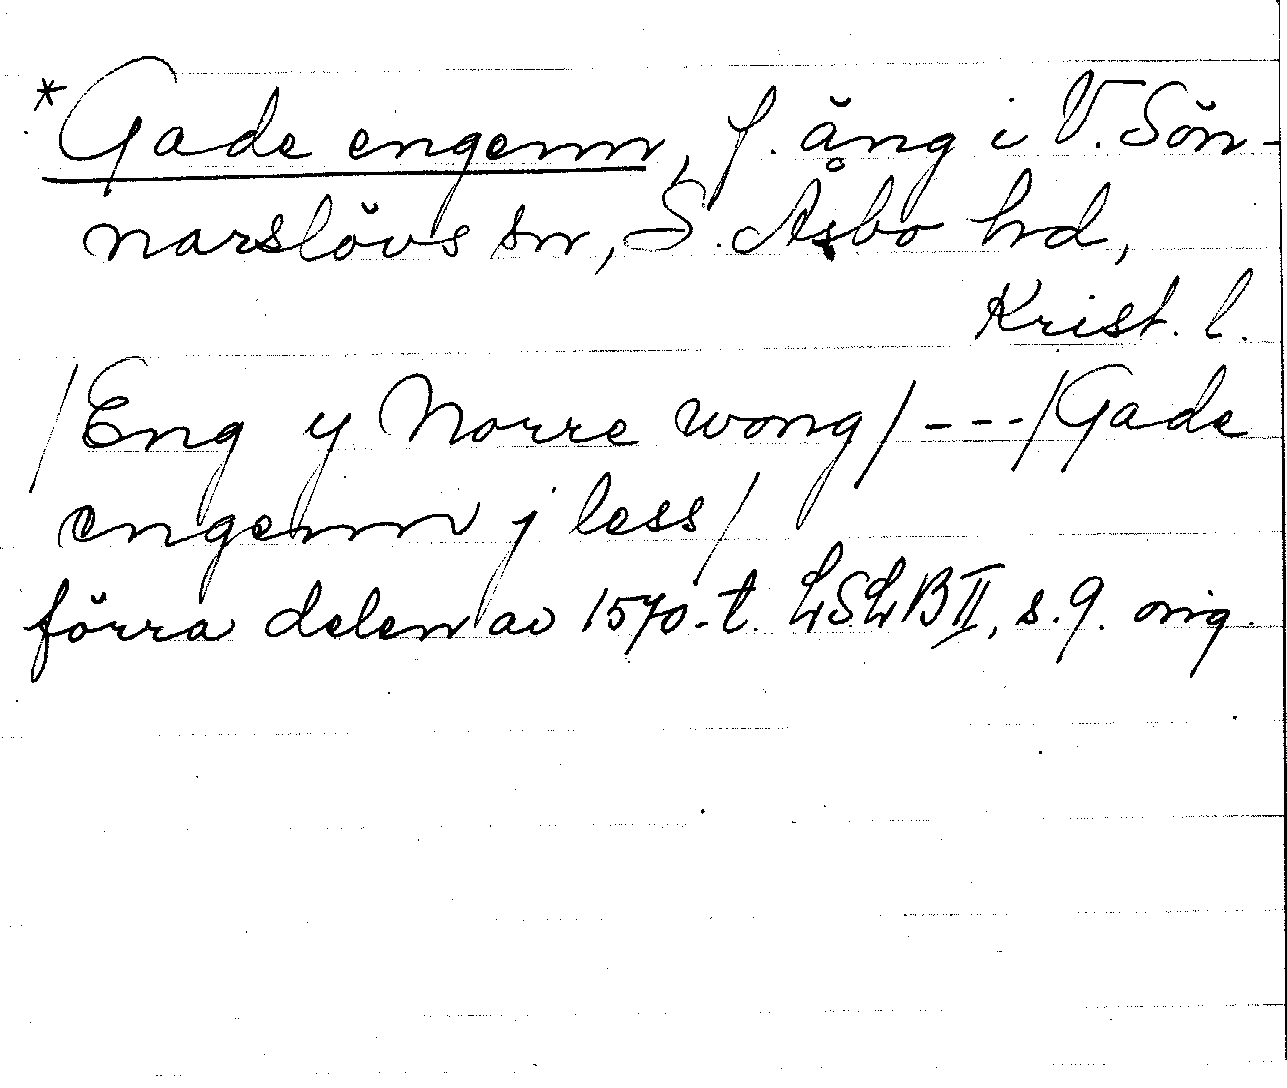 *Gade engenn, f. äng i V. Sön-
narslövs sn, S. Åsbo hd,
Krist. l.
/Eng y Norre wong/---/Gade
engenn j less/
förra delen av 1570-t. LSLB II, s. 9. orig.